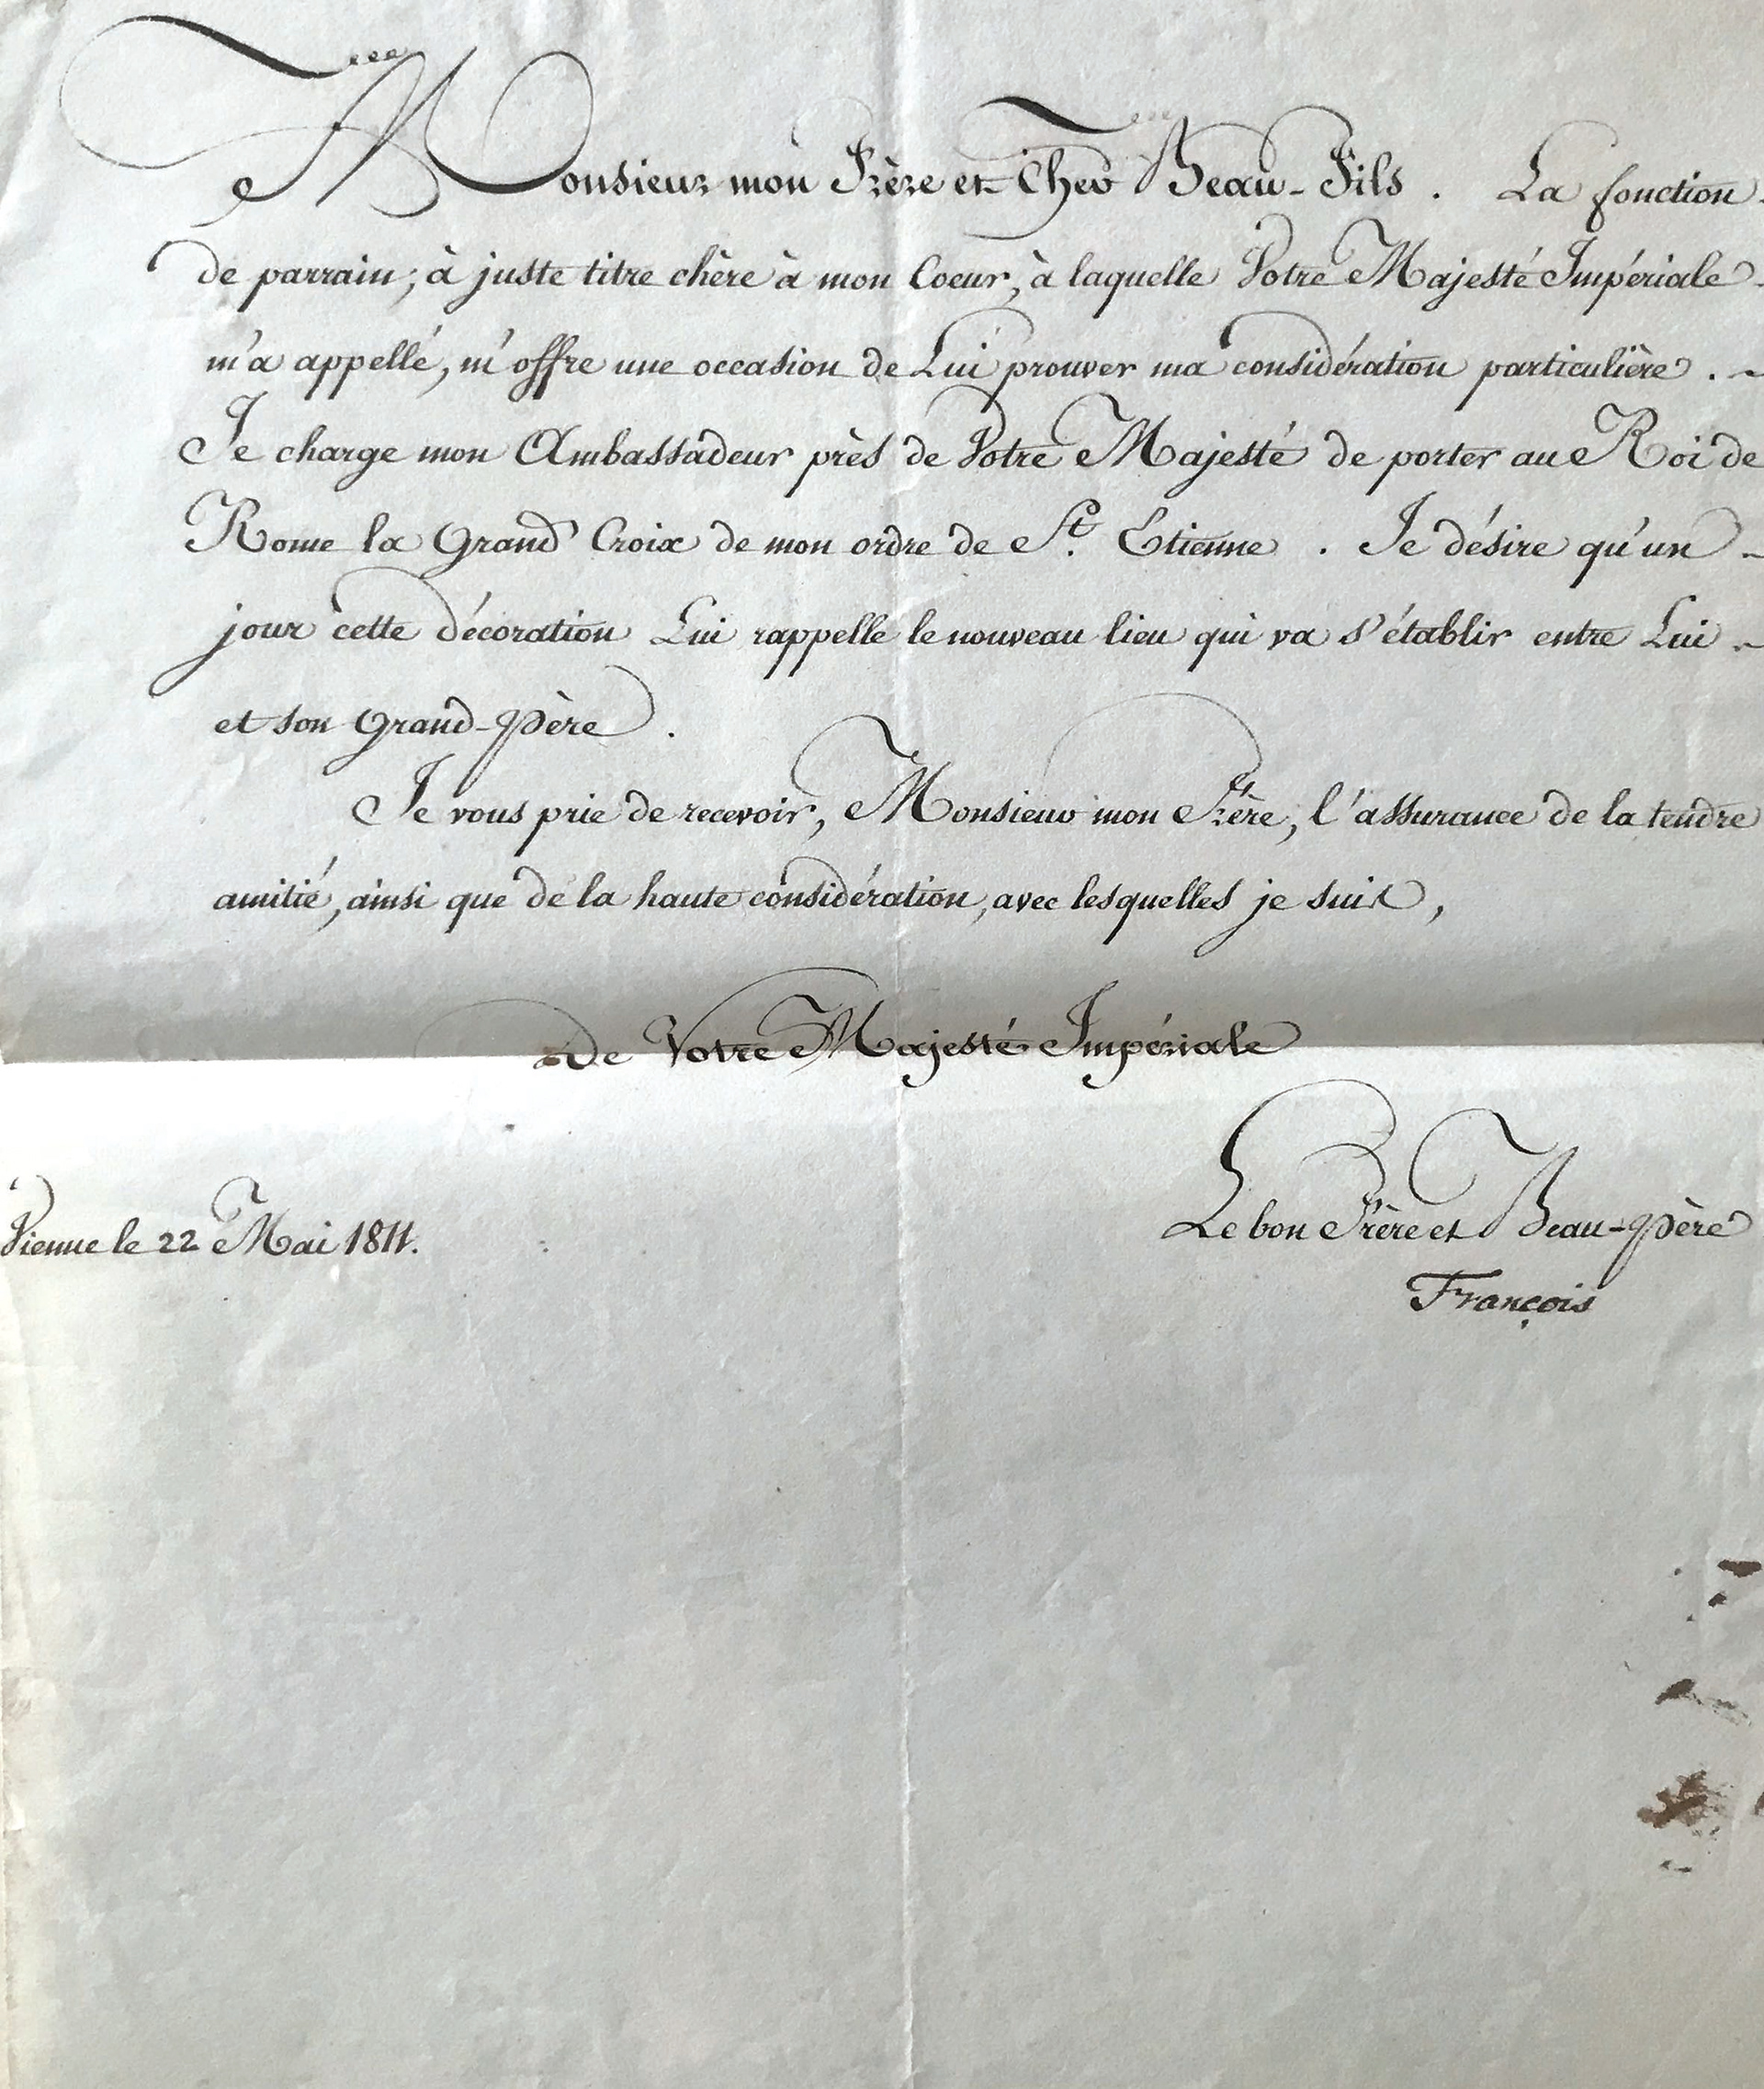 Monsieur mon Frère et Cher Beau-Fils. La fonction
de parrain; à juste titre chère à mon Coeur, à laquelle Votre Majesté Impériale
m'a appellé, m'offre une occasion de Lui prouver ma considération particulière.
Je charge mon Ambassadeur près de Votre Majesté de porter au Roi de
Rome la Grand Croix de mon ordre de St. Etienne. Je désire qu'un
jour cette décoration Lui rappelle le nouveau lien qui va s'établir entre Lui
et son Grand-Père.
Je vous prie de recevoir, Monsieur mon Frère, l'assurance de la tendre
amitié, ainsi que de la haute considération, avec lesquelles je suis,
De Votre Majesté Impériale
Le bon Frère et Beau-Père
Vienne le 22 Mai 1811.
François